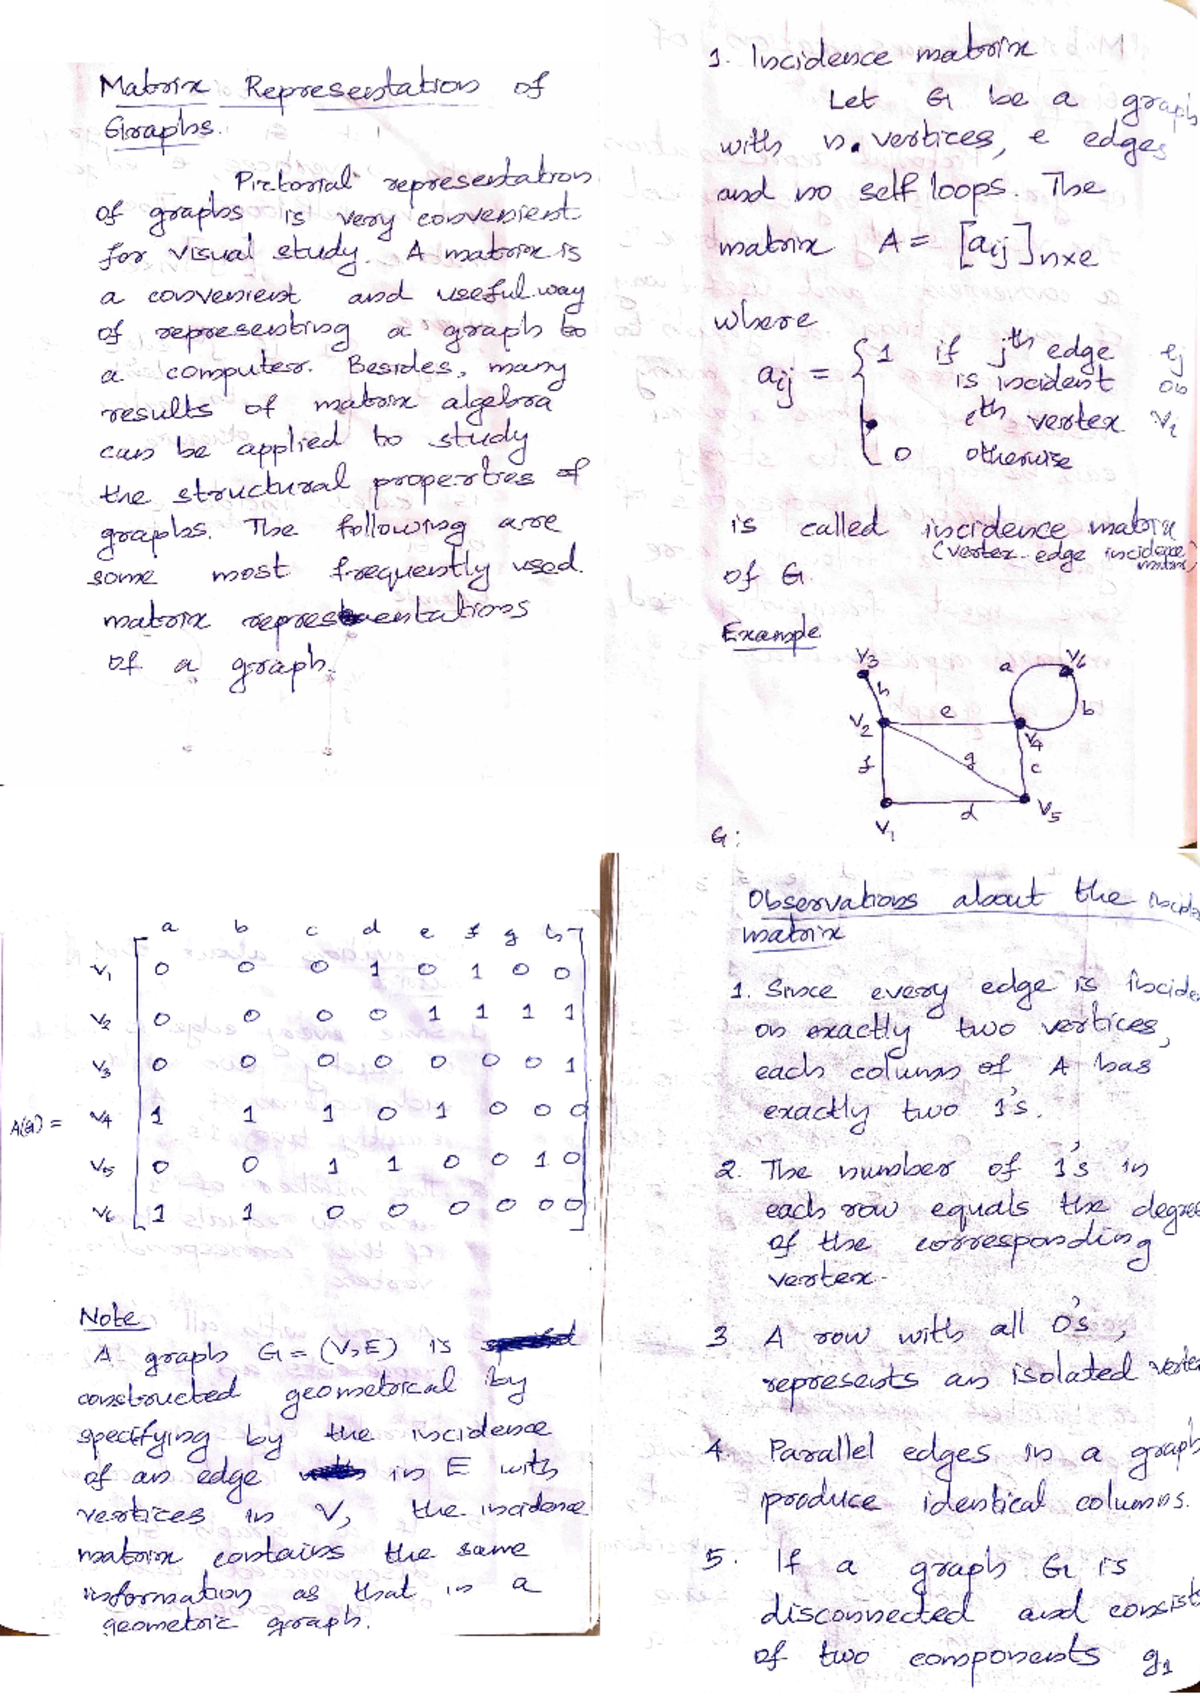 Matrix Representation of
Graphs.
Pictorial representation
of graphs is very convenient
for visual study. A matrix is
a convenient and useful way
of representing a graph to
a computer. Besides, many
results of matrix algebra
can be applied to study
the structural properties of
graphs. The following are
some most frequently used.
matrix representations
of a graph.
1. Incidence matrix
Let G be a graph
with n vertices, e edges
and no self loops. The
matrix A = [aij]n×e
where
aij = { 1 if jth edge ej
is incident on
ith vertex vi
0 otherwise
is called incidence matrix
(vertex-edge incidence matrix)
of G.
Example
v3 a v6
h b
v2 e v4
f g c
v1 d v5
G:
a b c d e f g h
v1 0 0 0 1 0 1 0 0
v2 0 0 0 0 1 1 1 1
v3 0 0 0 0 0 0 0 1
A(G) = v4 1 1 1 0 1 0 0 0
v5 0 0 1 1 0 0 1 0
v6 1 1 0 0 0 0 0 0
Note
A graph G = (V,E) is
constructed geometrical by
specifying by the incidence
of an edge in E with
vertices in V, the incidence
matrix contains the same
information as that in a
geometric graph.
Observations about the
matrix
1. Since every edge is incide
on exactly two vertices,
each column of A has
exactly two 1's.
2. The number of 1's in
each row equals the degree
of the corresponding
vertex.
3. A row with all 0's,
represents an isolated verte
4. Parallel edges in a graph
produce identical columns.
5. If a graph G is
disconnected and consists
of two components g1